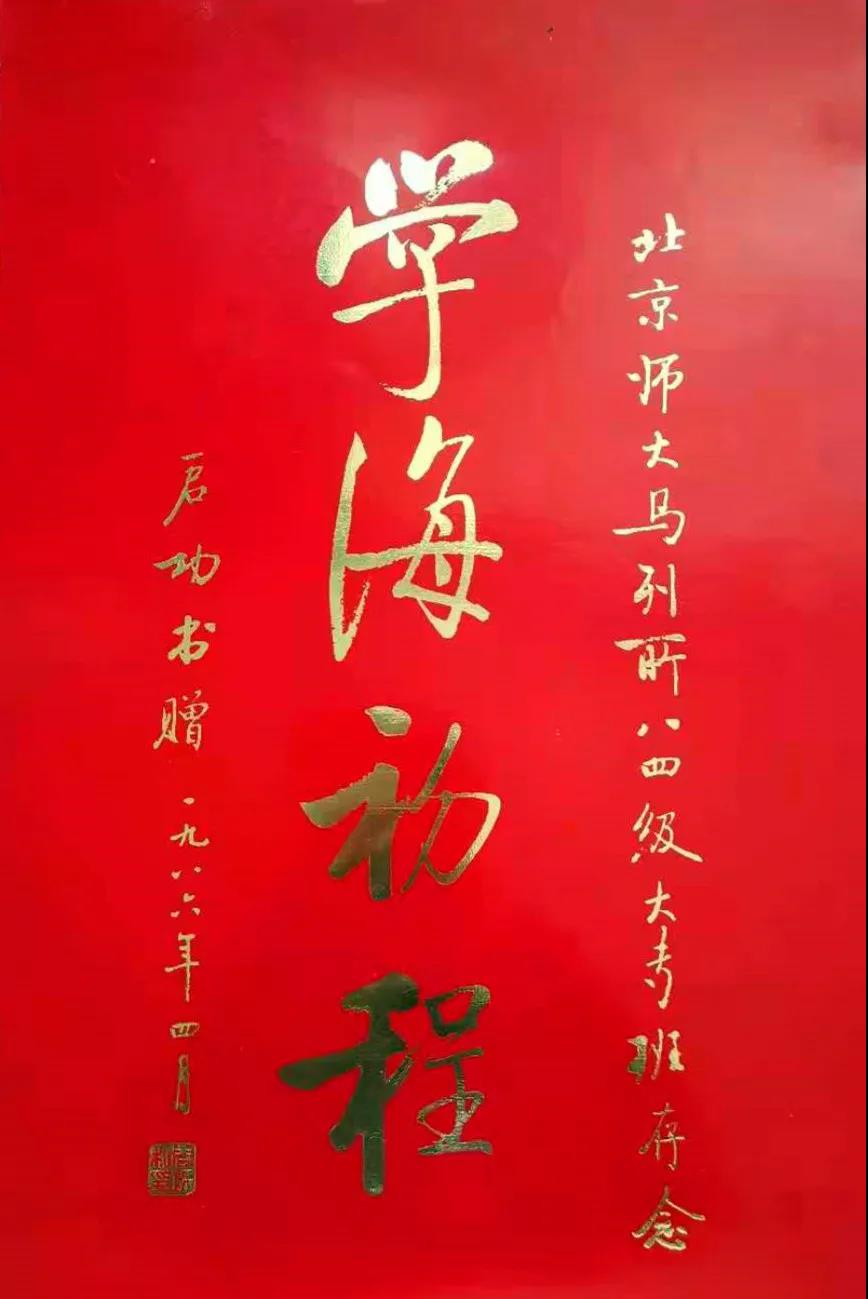 北京师大马列所八四级大专班存念
学海初程
启功书赠 一九八六年四月